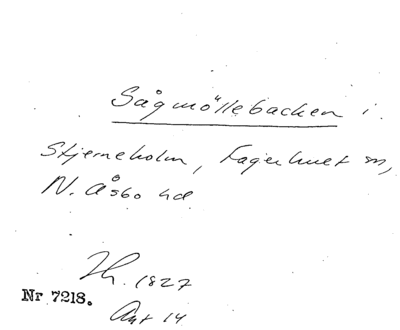 Sågmöllebacken i
Stjerneholm, Fagerhult sn,
N. Åsbo hd
Th. 1827
Nr 7218.
Akt 14